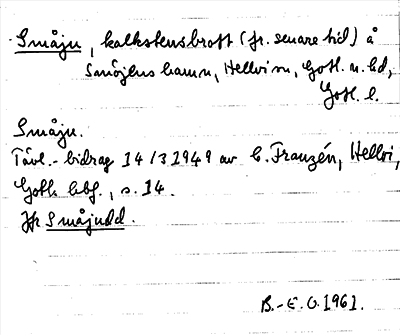 Småju, kalkstensbrott (fr. senare tid) å
Smöjens hamn, Hellvi sn, Gotl. n. hd,
Gotl. l.
Småju.
Tävl.-bidrag 14/3 1949 av C. Franzén, Hellvi,
Gotl. hbf., s. 14.
Jfr Småjudd.
B.-E. O. 1961.